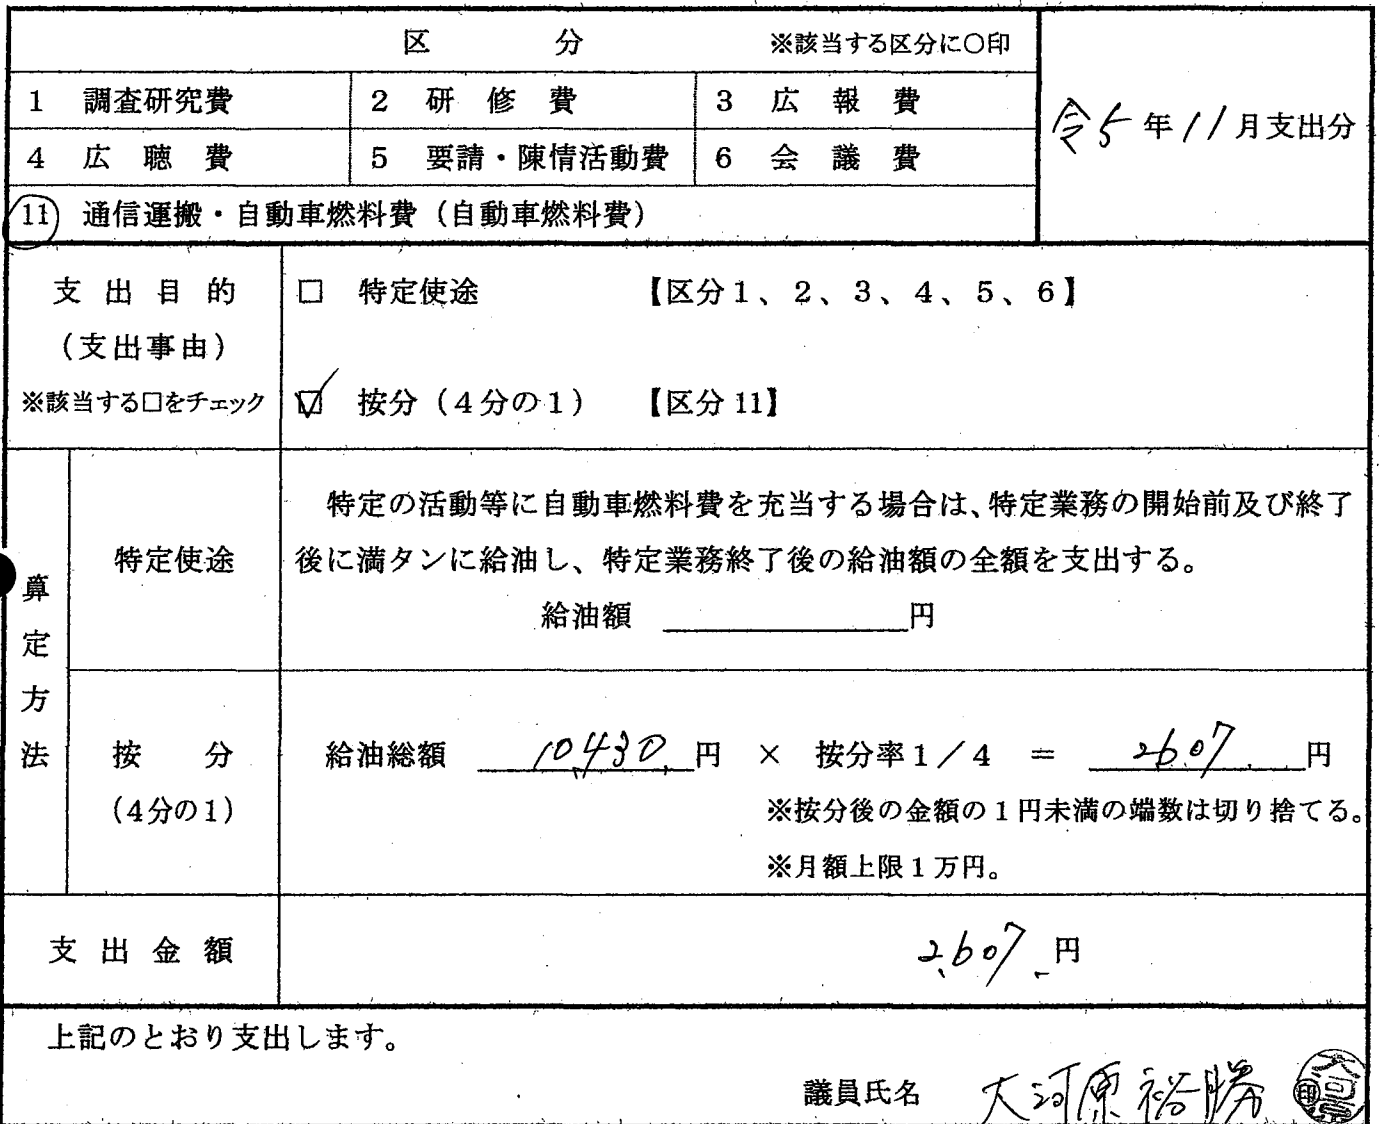 区 分 ※該当する区分に○印
1 調査研究費 2 研修費 3 広報費
令5年11月支出分
4 広聴費 5 要請・陳情活動費 6 会議費
11 通信運搬・自動車燃料費（自動車燃料費）
支出目的
（支出事由）
※該当する□をチェック
□ 特定使途 【区分1、2、3、4、5、6】
☑ 按分（4分の1） 【区分11】
算定方法
特定使途
特定の活動等に自動車燃料費を充当する場合は、特定業務の開始前及び終了
後に満タンに給油し、特定業務終了後の給油額の全額を支出する。
給油額 円
按分
（4分の1）
給油総額 10,430 円 × 按分率1／4 ＝ 2,607 円
※按分後の金額の1円未満の端数は切り捨てる。
※月額上限1万円。
支出金額 2,607 円
上記のとおり支出します。
議員氏名 大河原裕勝 印